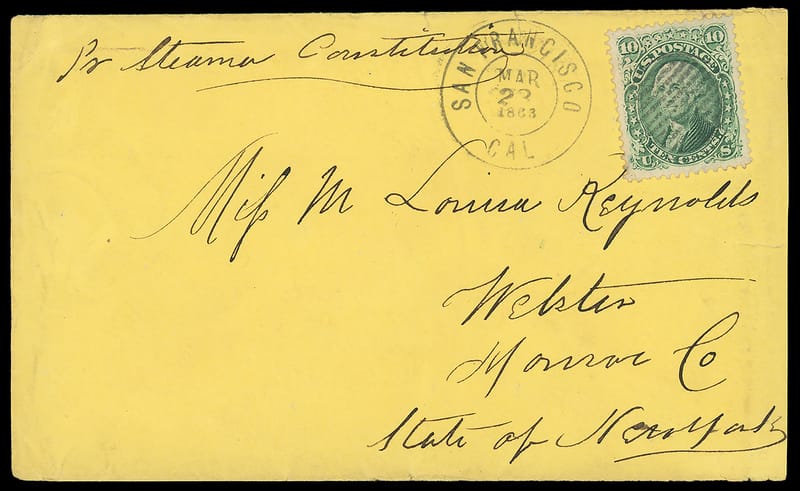 Pr Steamer Constitution
SAN FRANCISCO
MAR
23
1863
CAL
10 10
U.S. POSTAGE
TEN CENTS.
U S
Miſs M Louisa Reynolds
Webster
Monroe Co
State of New York